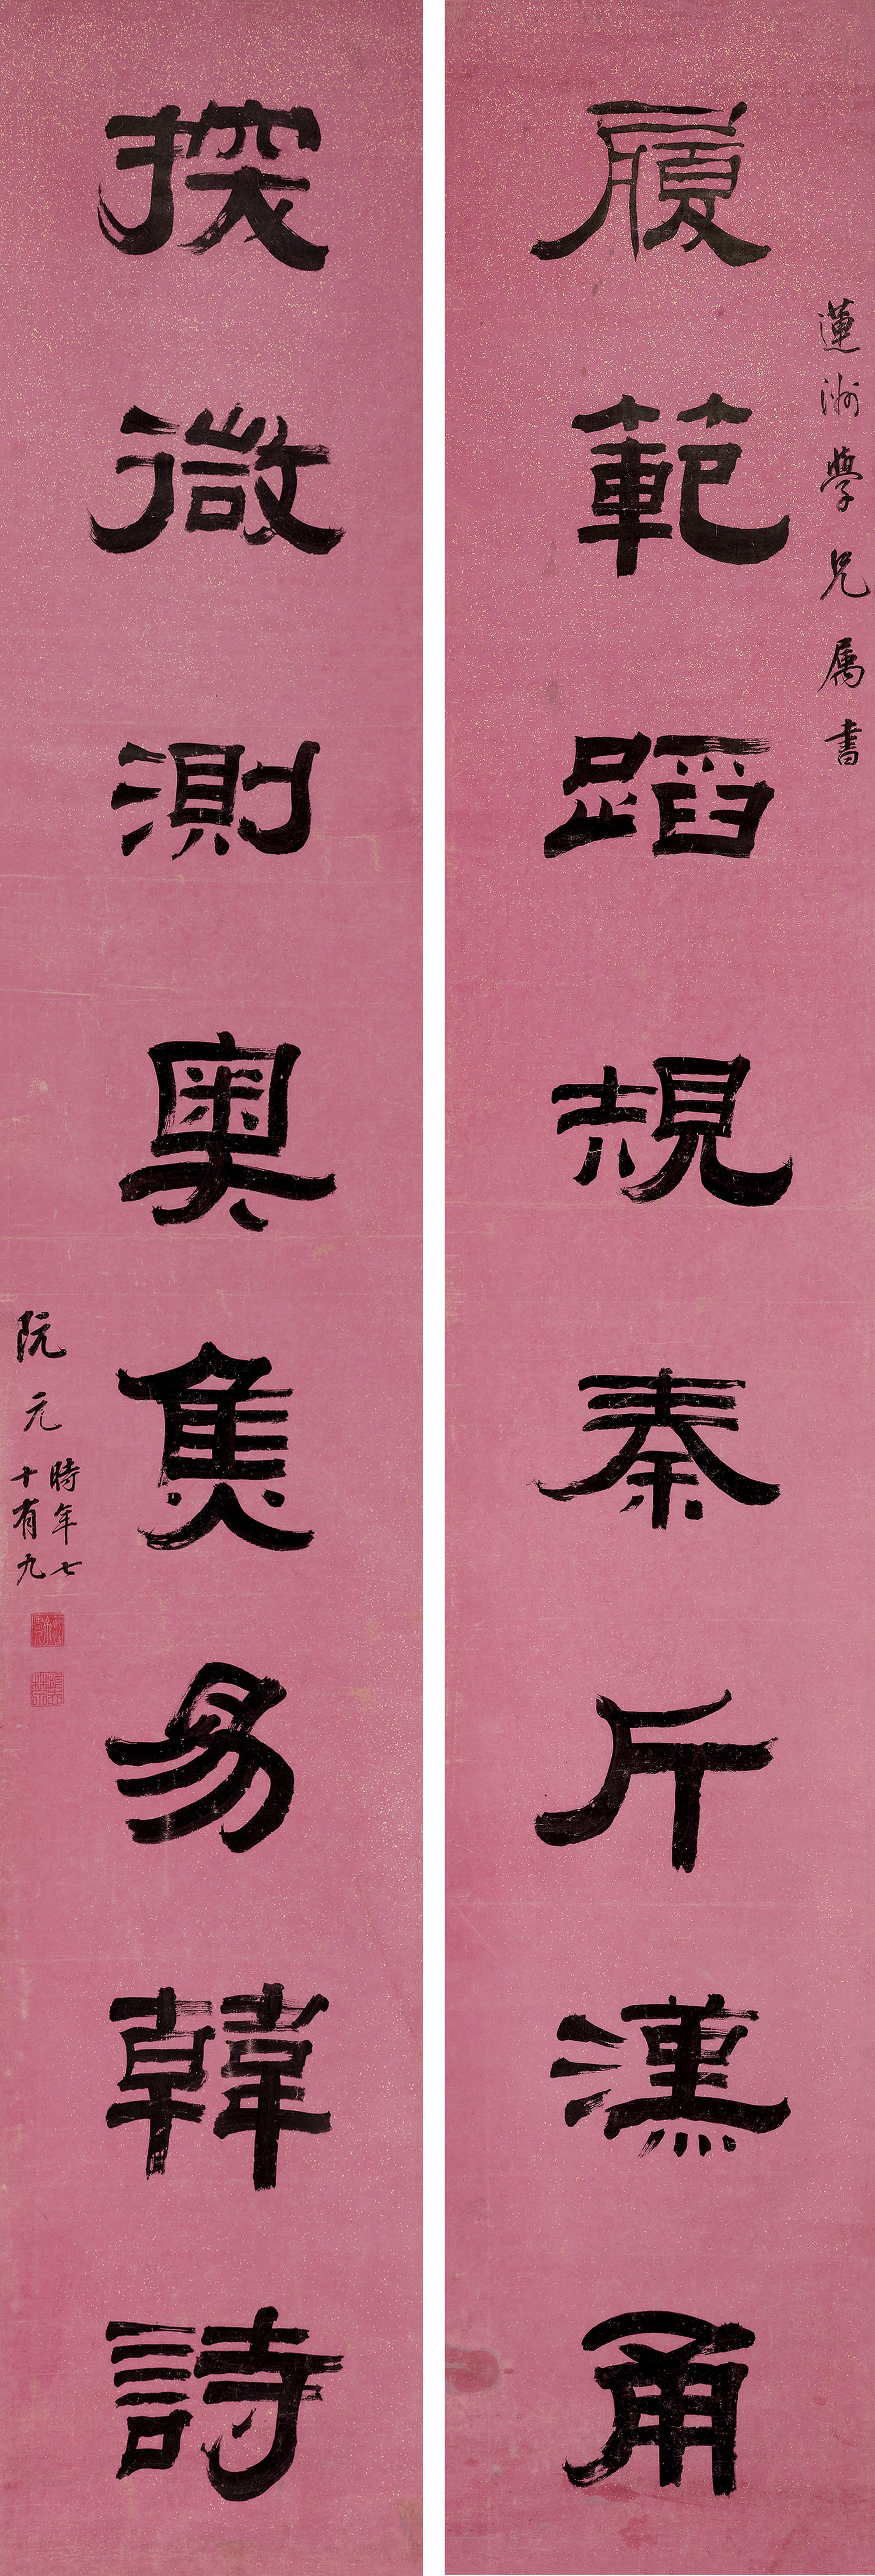 蓮洲學兄属書
履範蹈規秦斤漢甬
探微測奧焦易韓詩
阮元時年七
十有九